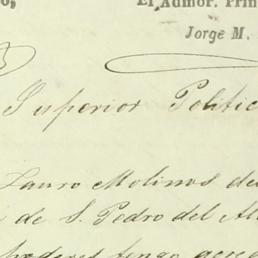 o,
El Admor. Prin
Jorge M.
Superior Politic
Lauro Molinos de
de S. Pedro del Al
poderes tengo acre